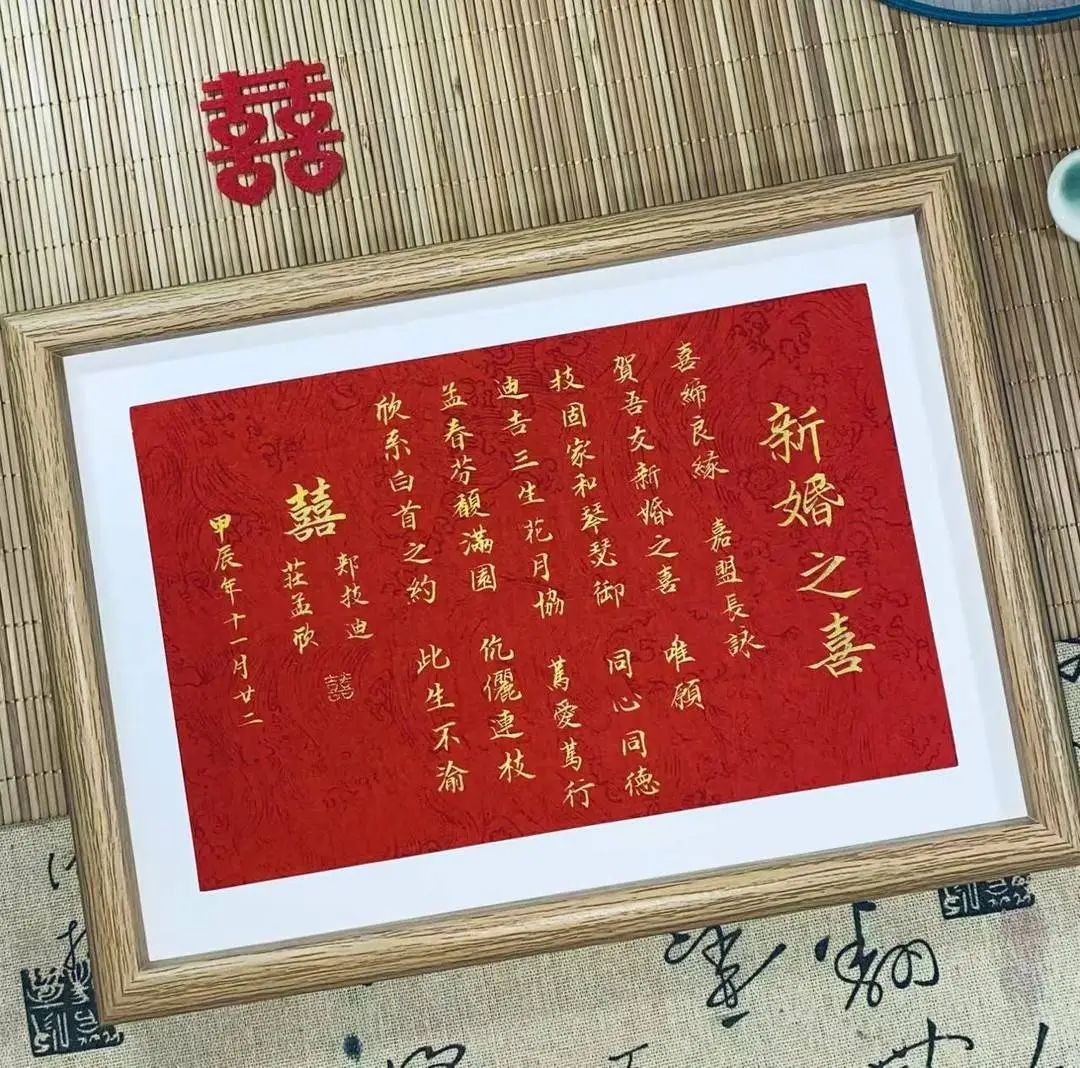 囍
新婚之喜
喜締良緣 嘉盟長詠
賀吾友新婚之喜 唯願
技固家和琴瑟御 同心同德
迪吉三生花月協 篤愛篤行
孟春芬馥滿園 伉儷連枝
欣系白首之約 此生不渝
囍
鄭技迪
莊孟欣
囍
甲辰年十一月廿二